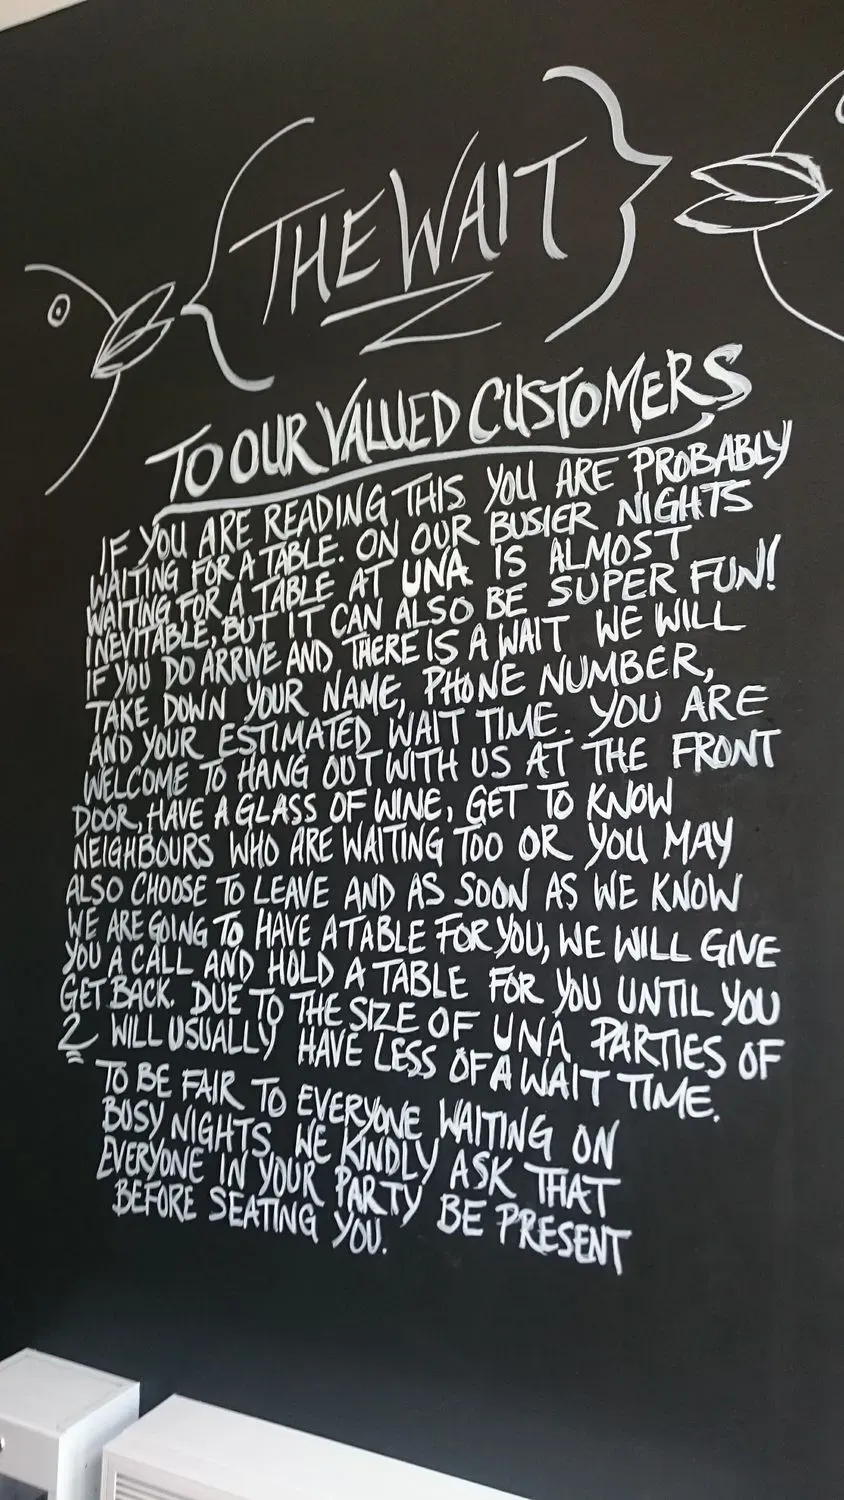 THE WAIT
TO OUR VALUED CUSTOMERS
IF YOU ARE READING THIS YOU ARE PROBABLY
WAITING FOR A TABLE. ON OUR BUSIER NIGHTS
WAITING FOR A TABLE AT UNA IS ALMOST
INEVITABLE, BUT IT CAN ALSO BE SUPER FUN!
IF YOU DO ARRIVE AND THERE IS A WAIT WE WILL
TAKE DOWN YOUR NAME, PHONE NUMBER,
AND YOUR ESTIMATED WAIT TIME. YOU ARE
WELCOME TO HANG OUT WITH US AT THE FRONT
DOOR, HAVE A GLASS OF WINE, GET TO KNOW
NEIGHBOURS WHO ARE WAITING TOO OR YOU MAY
ALSO CHOOSE TO LEAVE AND AS SOON AS WE KNOW
WE ARE GOING TO HAVE A TABLE FOR YOU, WE WILL GIVE
YOU A CALL AND HOLD A TABLE FOR YOU UNTIL YOU
GET BACK. DUE TO THE SIZE OF UNA PARTIES OF
2 WILL USUALLY HAVE LESS OF A WAIT TIME.
TO BE FAIR TO EVERYONE WAITING ON
BUSY NIGHTS, WE KINDLY ASK THAT
EVERYONE IN YOUR PARTY BE PRESENT
BEFORE SEATING YOU.